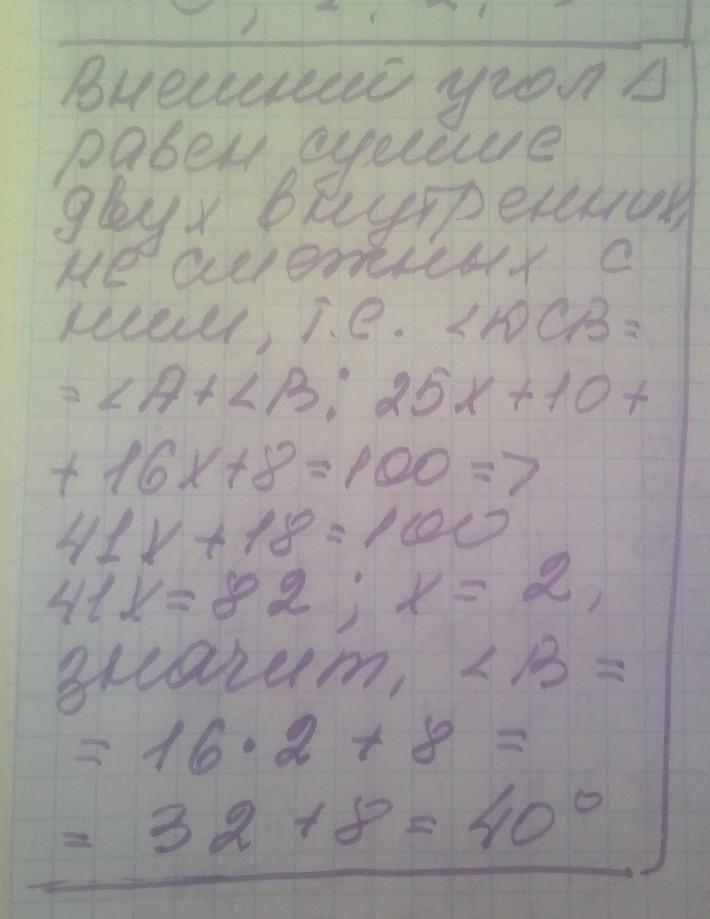 Внешний угол Δ
равен сумме
двух внутренних,
не смежных с
ним, т.е. <DCB=
=<A+<B; 25x+10+
+16x+8=100=>
41x+18=100
41x=82; x=2,
значит, <B=
=16·2+8=
=32+8=40°